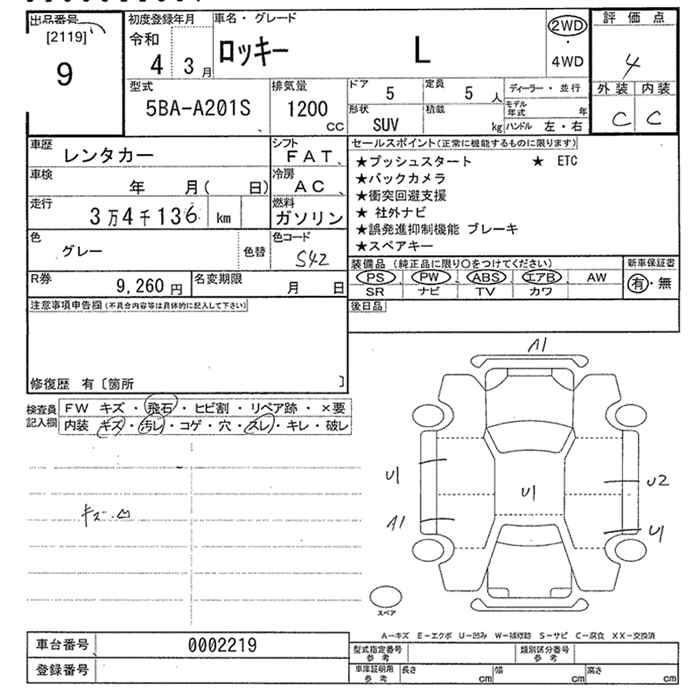 出品番号 初度登録年月 車名・グレード 評価点
[2119] 9
令和 4 3月
ロッキー L
2WD ・ 4WD
4
外装 内装
C C
型式 5BA-A201S
排気量 1200 CC
ドア 5
定員 5人
形状 SUV
積載 kg
ディーラー・並行
モデル年式 年
ハンドル 左・右
車歴 レンタカー
シフト FAT
車検 年 月( 日)
冷房 AC
走行 3万4千136 km
燃料 ガソリン
色 グレー 色替
色コード S42
R券 9,260円
名変期限 月 日
セールスポイント(正常に機能するものに限ります)
★プッシュスタート ★ ETC
★バックカメラ
★衝突回避支援
★ 社外ナビ
★誤発進抑制機能 ブレーキ
★スペアキー
装備品 (純正品に限り○をつけてください) 新車保証書
PS PW ABS エアB AW
SR ナビ TV カワ
有・無
後日品
注意事項申告欄(不具合内容等は具体的に記入して下さい)
修復歴 有〔箇所 〕
検査員記入欄
FW キズ・飛石・ヒビ割・リペア跡・×要
内装 キズ・汚レ・コゲ・穴・スレ・キレ・破レ
キズ・凹
A1
U1
U1
U2
A1
U1
スペア
A-キズ E-エクボ U-凹み W-補修跡 S-サビ C-腐食 XX-交換済
車台番号 0002219
登録番号
型式指定番号 参考
類別区分番号 参考
車庫証明用 参考 長さ cm 幅 cm 高さ cm